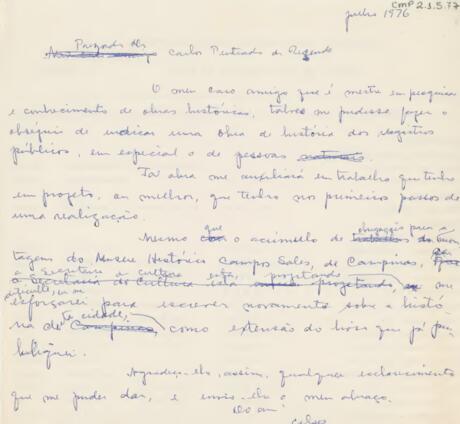 CMP 2.1.5.77
julho 1976
Prezado Dr.
Carlos Penteado de Rezende
O meu caro amigo que é mestre em pesquisa
e conhecimento de obras históricas, talvez me pudesse fazer o
obséquio de indicar uma obra de história dos registros
públicos, em especial o de pessoas naturais.
Tal obra me auxiliará em trabalho que tenho
em projeto, ou melhor, que tenho nos primeiros passos de
uma realização.
que obrigações para a
Mesmo com o acúmulo de trabalhos da mon
tagem do Museu Histórico Campos Sales, de Campinas, que
a Secretaria a cultura está projetando
a Secretaria de Cultura está projetando, me
esforçarei para escrever novamente sobre a histó
ta cidade,
ria de Campinas, como extensão do livro que já pu
bliquei.
Agradeço-lhe, assim, qualquer esclarecimento
que me puder dar, e envio-lhe o meu abraço.
Do am°
Celso